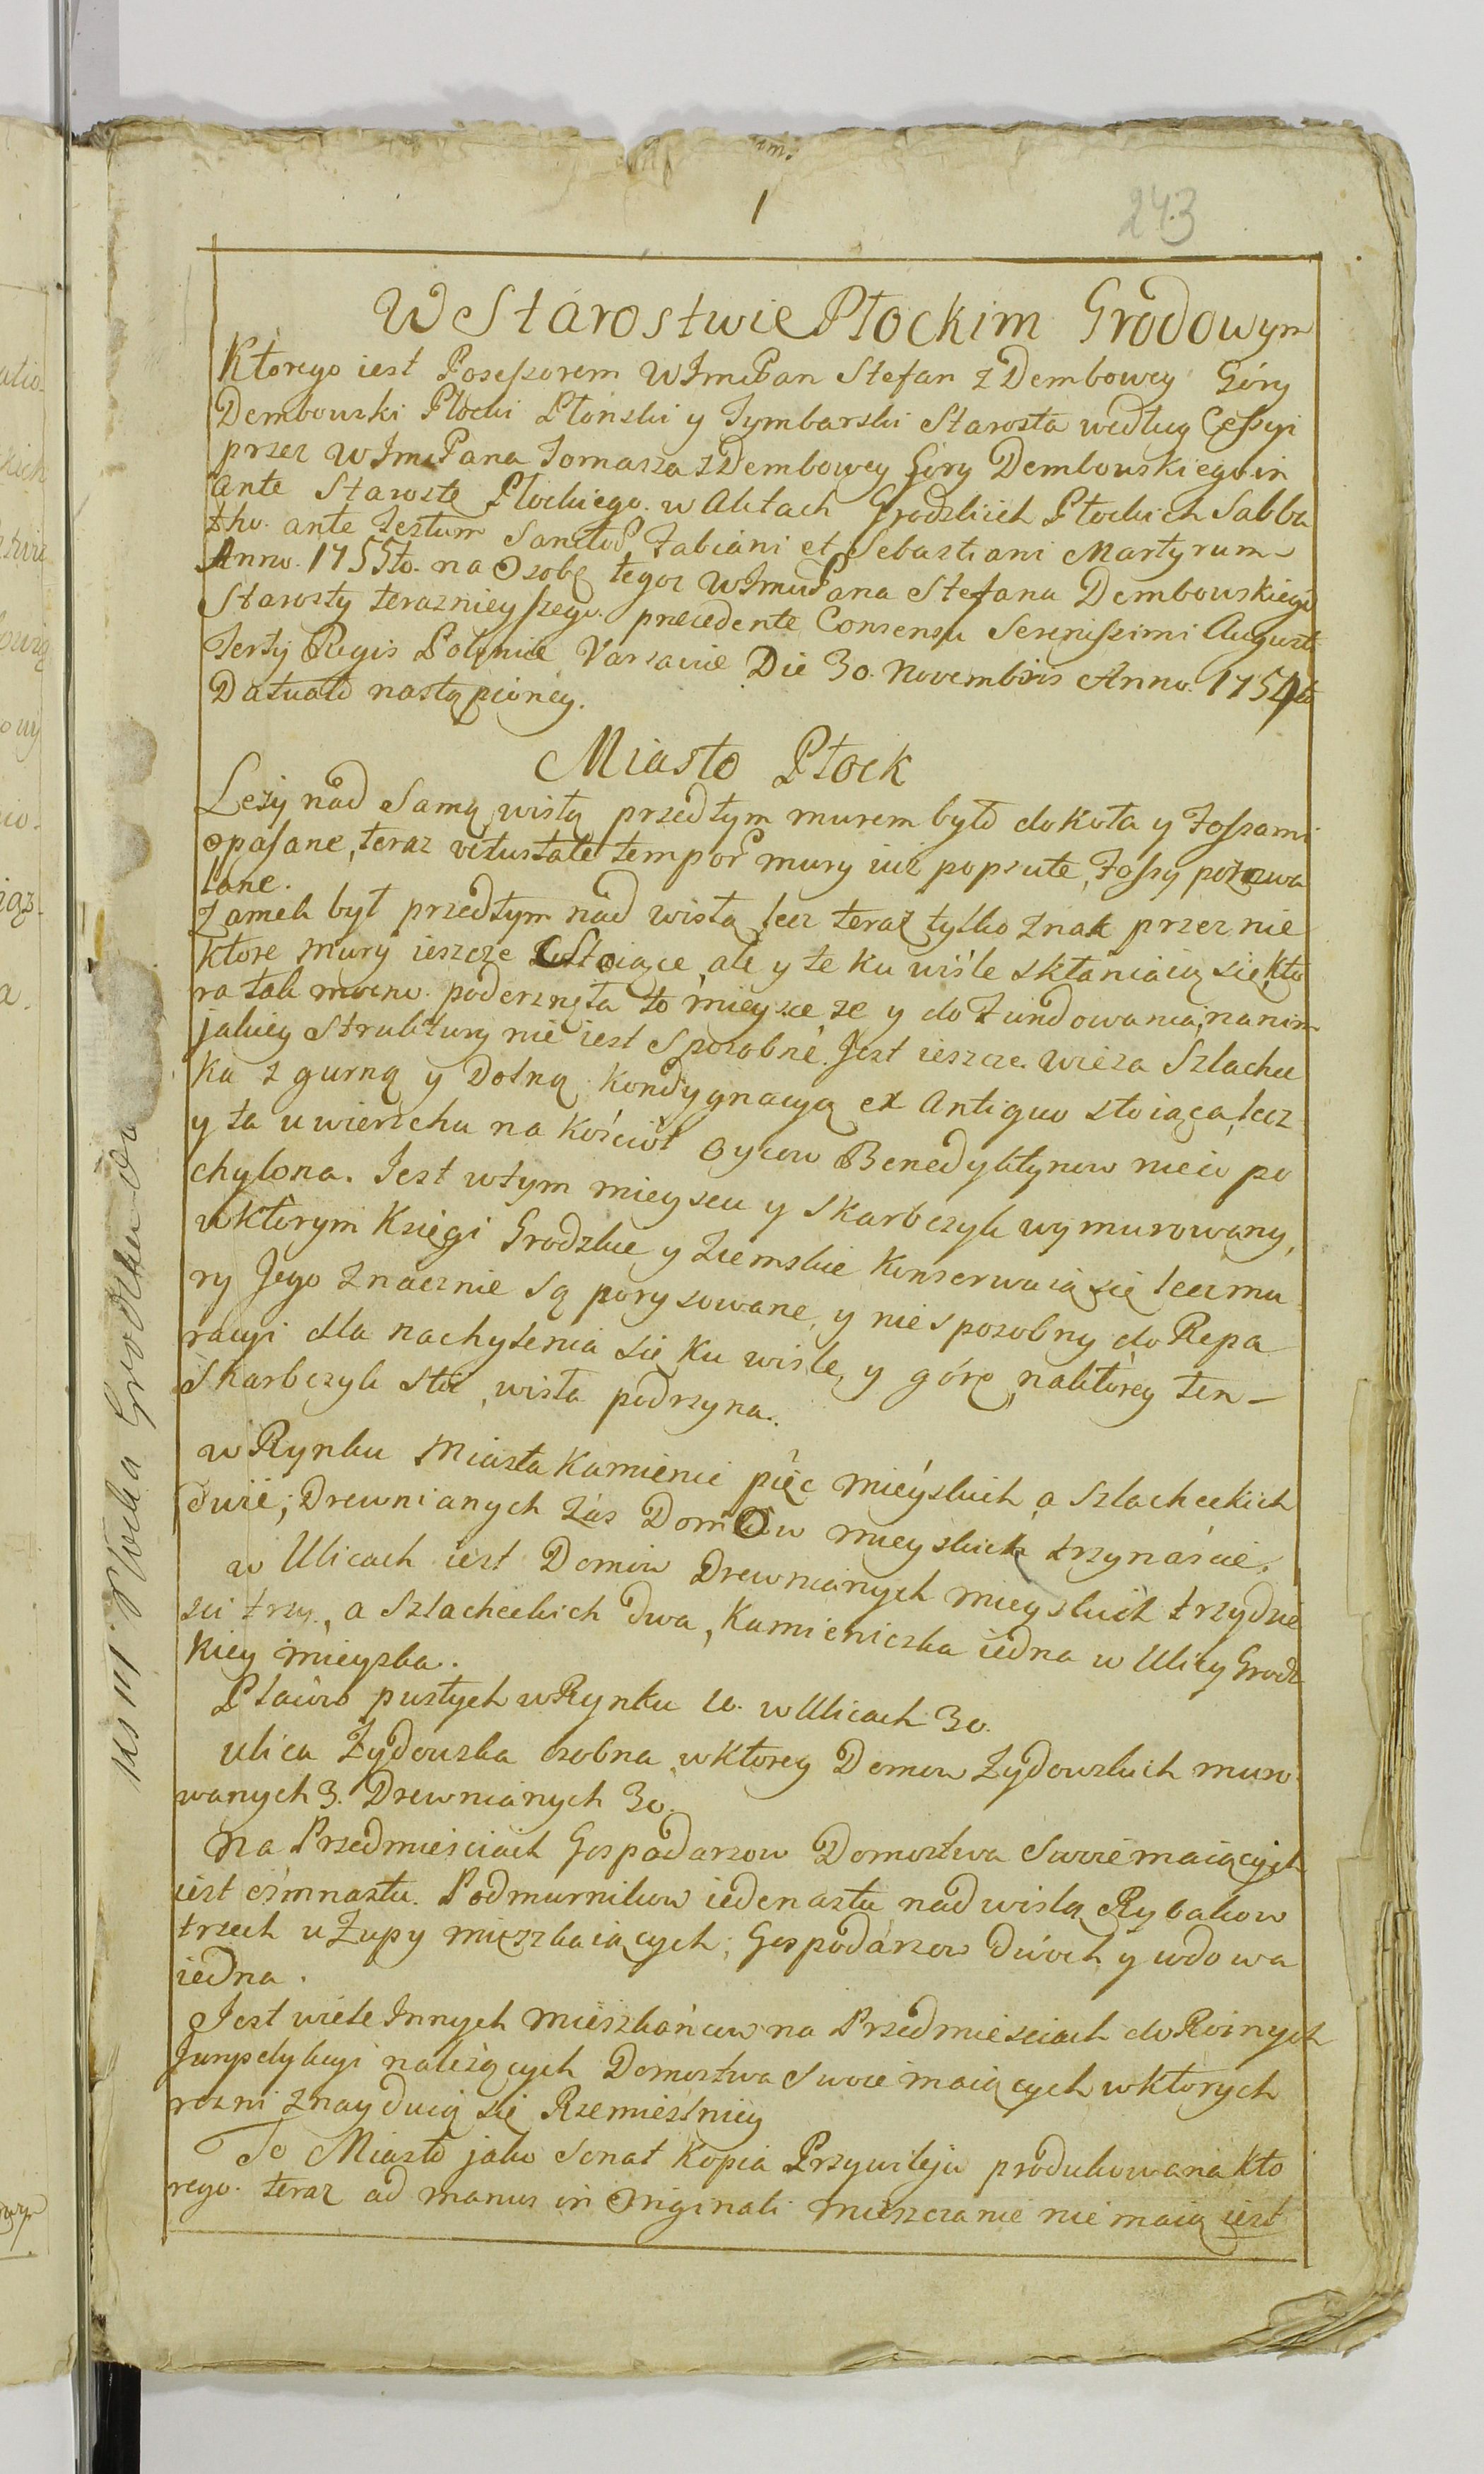 1
243
W Starostwie Płockim Grodowym
Ktorego iest Posessorem WJmcPan Stefan z Dembowey Góry
Dembowski Płocki Płonski y Tymbarski Starosta według Cessyi
przez WJmcPana Tomasza z Dembowey Góry Dembowskiego in
ante Starostę Płockiego w Aktach Grodzkich Płockich Sabba
tho. ante Festum Sanctor Fabiani et Sebastiani Martyrum
Anno. 1755to. na Osobę tegoz WJmcPana Stefana Dembowskiego
Starosty teraznieyszego. precedente Consensu Serenissimi Augusti
Tertij Regis Polonie Varsavie Die 30. Novembris Anno. 1754to
Datuato nastąpioney.
Miasto Płock
Leży nad Samą wisłą przedtym murem było dokoła y Fossami
opasane, teraz vetustate tempor mury iuż popsute, Fossy pozawa
lane.
Zamek był przedtym nad wisłą lecz teraz tylko znak przez nie
ktore mury ieszcze stoiące, ale y te ku wiśle skłaniaią się, kto
ra tak mocno poderznęła to mieysce że y do Fundowania na nim
jakiey struktury nie iest sposobne. Jest ieszcze wieża Szlachec
ka z gurną y Dolną kondygnacyą ex Antiquo stoiąca, lecz
y ta u wierzchu na kościoł Oycow Benedyktynow nieco po
chylona. Jest w tym mieyscu y Skarbczyk wymurowany,
w ktorym Księgi Grodzkie y Ziemskie konserwuią się lecz mu
ry Jego znacznie są porysowane, y nie sposobny do Repa
racyi dla nachylenia sie ku wiśle, y górę na ktorey ten
Skarbczyk stoi, wisła podrzyna.
w Rynku Miasta Kamienic pięc mieyskich, a Szlacheckich
dwie; Drewnianych zas Domow mieyskich trzynaście.
w Ulicach iest Domow Drewnianych mieyskich trzydzie
sci trzy, a Szlacheckich dwa, Kamieniczka iedna w Ulicy Grodz
kiey mieyska.
Placow pustych w Rynku 10. w Ulicach 30.
ulica Żydowska osobna w ktorey Domow Żydowskich muro
wanych 3. Drewnianych 30.
Na Przedmieściach Gospodarzow Domostwa Swoie maiących
iest ośmnastu. Podmurnikow iedenastu nad wisłą Rybakow
trzech u Żupy mieszkaiących; Gospodarzow dwoch y wdowa
iedna.
Jest wiele Innych mieszkańcow na Przedmiesciach do Roznych
Juryzdykcyi należących Domostwa Swoie maiących w ktorych
rozni znayduią się Rzemieslnicy
To Miasto jako Sonat Kopia Przywileju produkowana kto
rego teraz ad manus in Originali mieszczanie nie maią iest